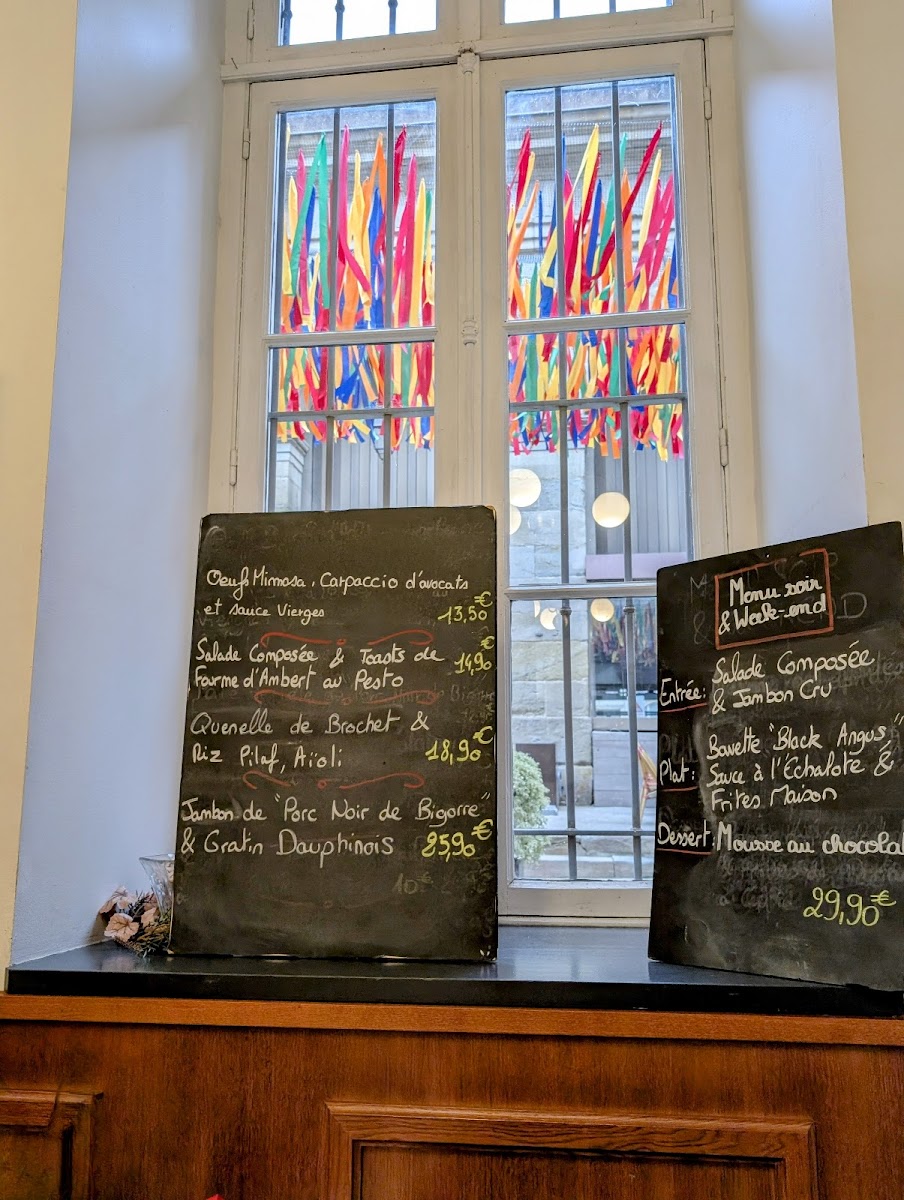 Oeufs Mimosa, Carpaccio d'avocats
et sauce Vierges 13,50€
Salade Composée & Toasts de
Fourme d'Ambert au Pesto 14,90€
Quenelle de Brochet &
Riz Pilaf, Aïoli 18,90€
Jambon de "Porc Noir de Bigorre"
& Gratin Dauphinois 25,90€
10€
Menu soir
& Week-end
Entrée: Salade Composée
& Jambon Cru
Plat: Bavette "Black Angus"
Sauce à l'Échalote &
Frites Maison
Dessert: Mousse au chocolat
29,90€